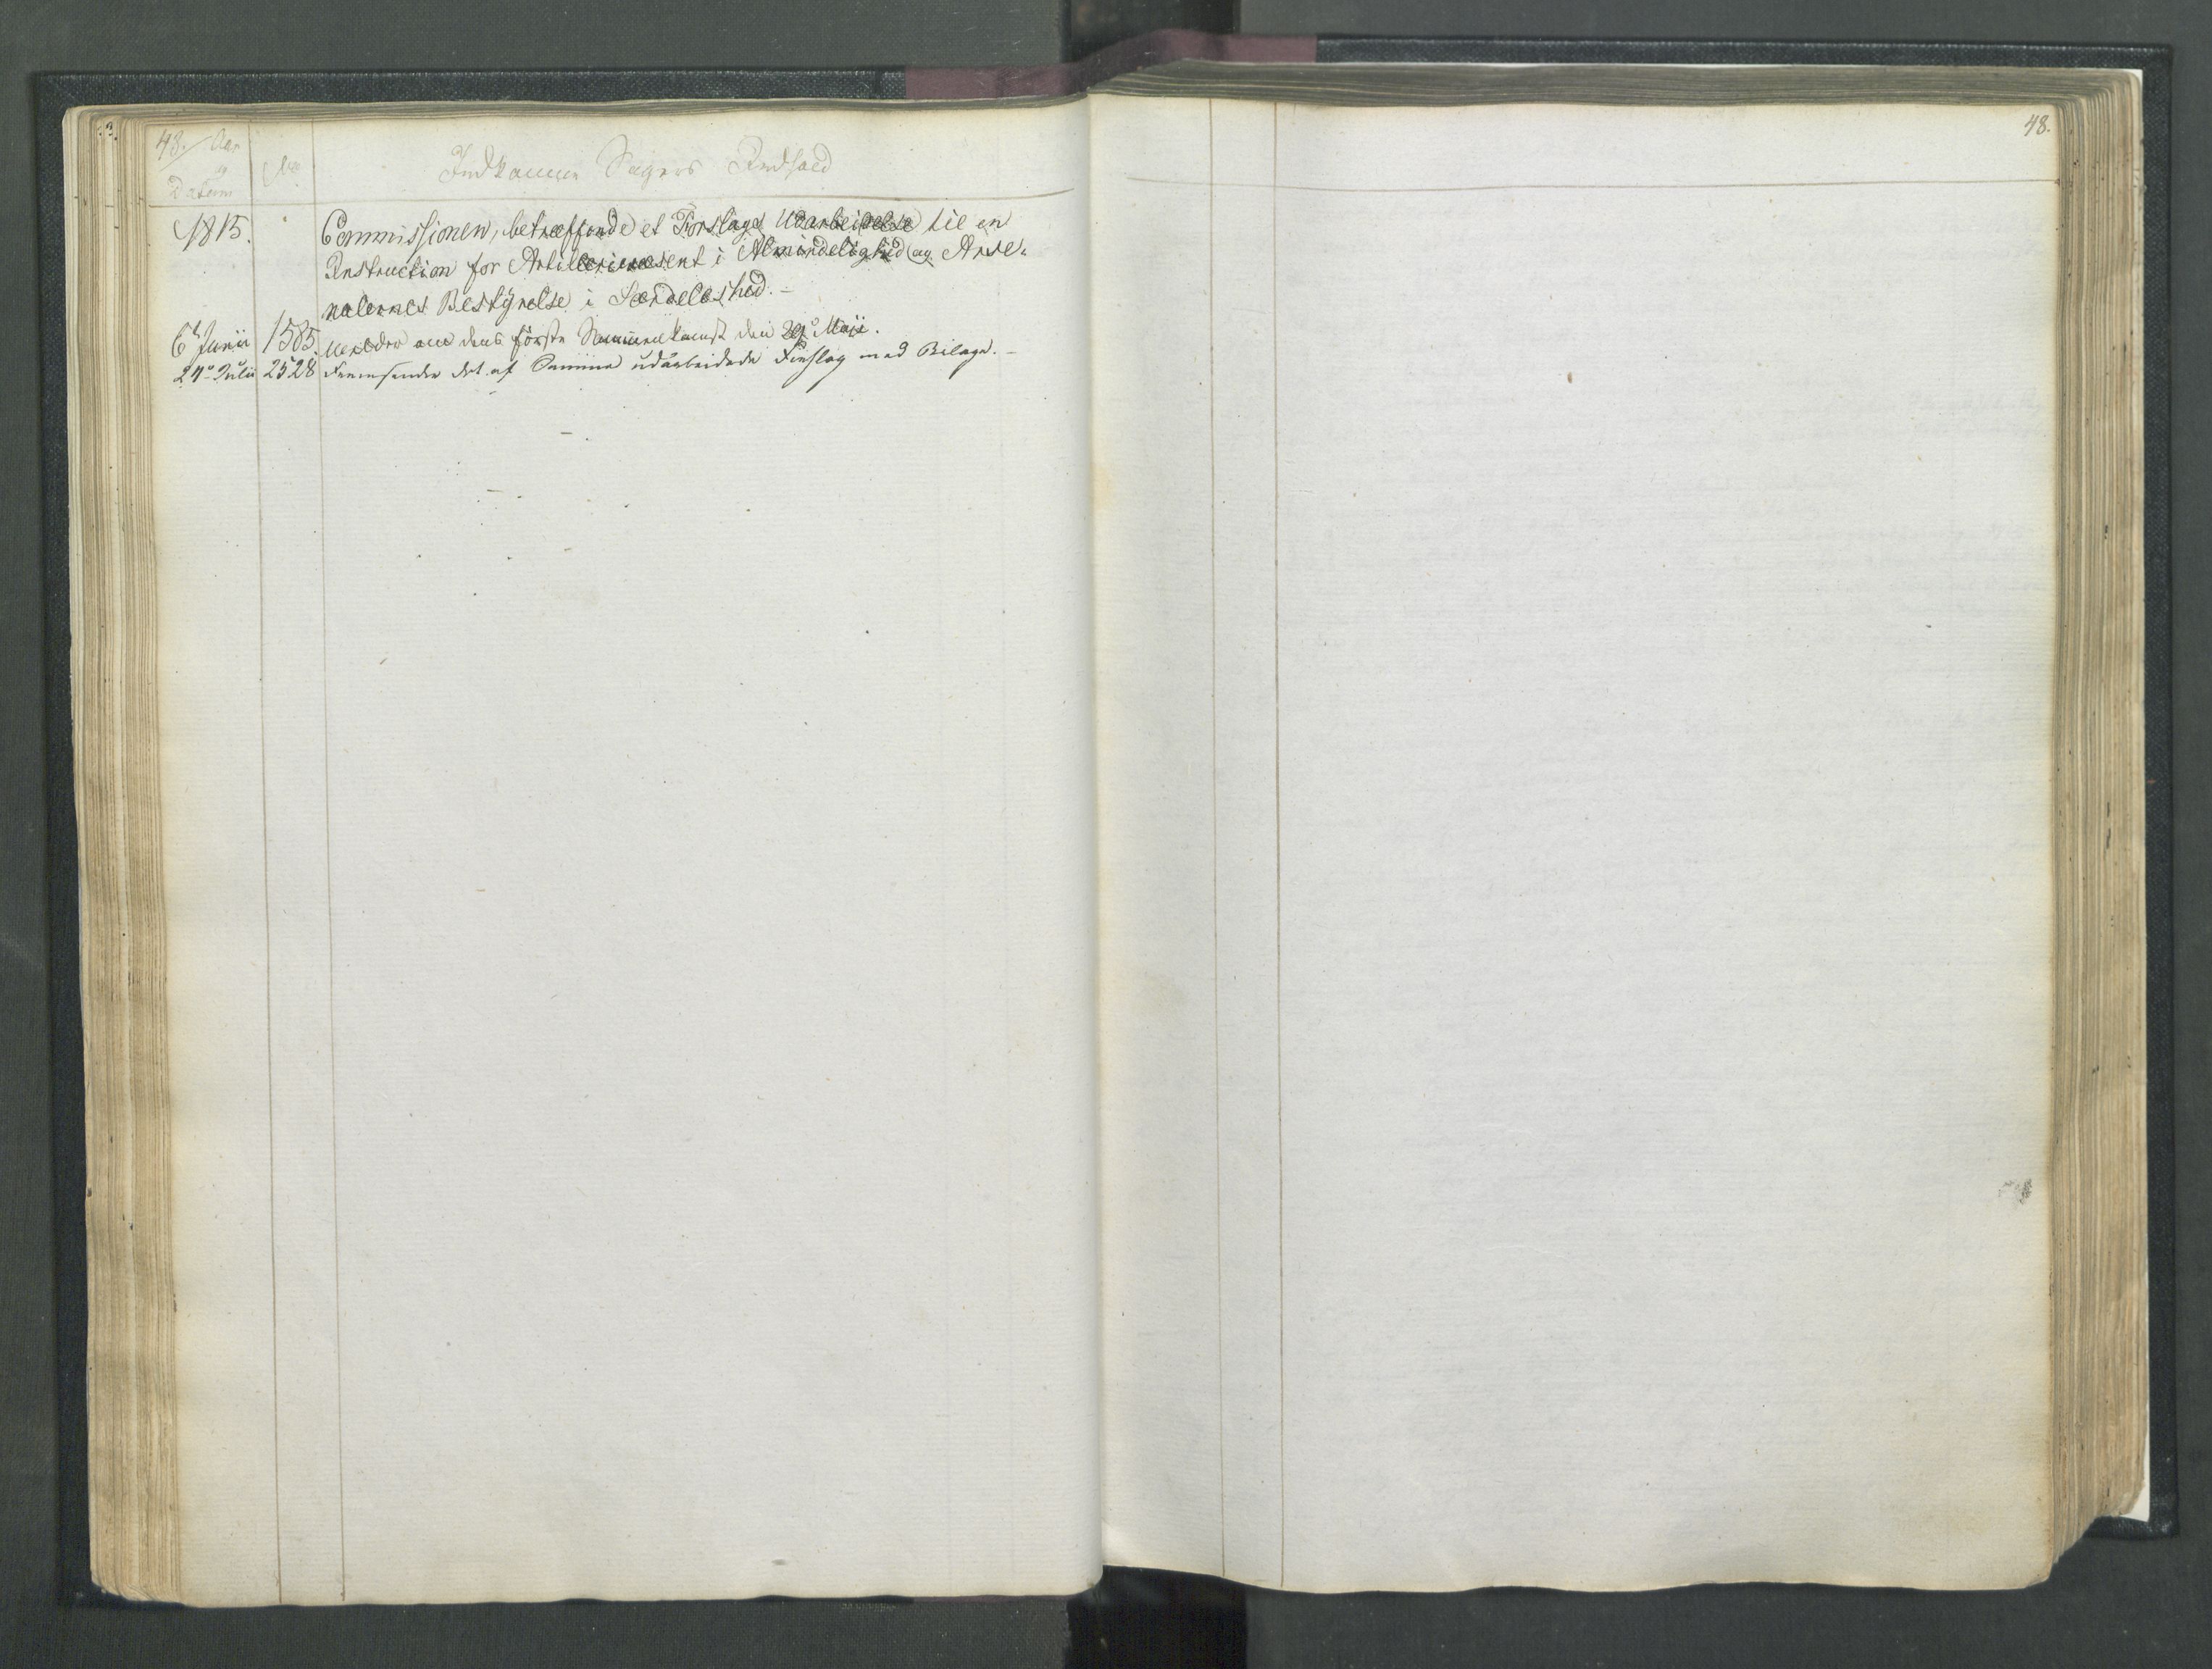 48. Aar
og
Datum
No
Indkomne Sagers Indhold
48.
1815. Commissionen, betræffende et Forslags Udarbeidelse til en
Instruction for Artillerievæsent i Almindelighed og Arse-
nalernes Bestÿrelse i Særdeleshed. -
6te Junii 1585. Melder om dens første Sammenkomst den 29de Maii.
24de Julii 2528 Fremsender det af Samme udarbeidede Forslag med Bilage. -